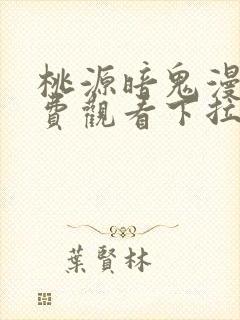 桃源暗鬼漫
費觀看下拉
葉賢林